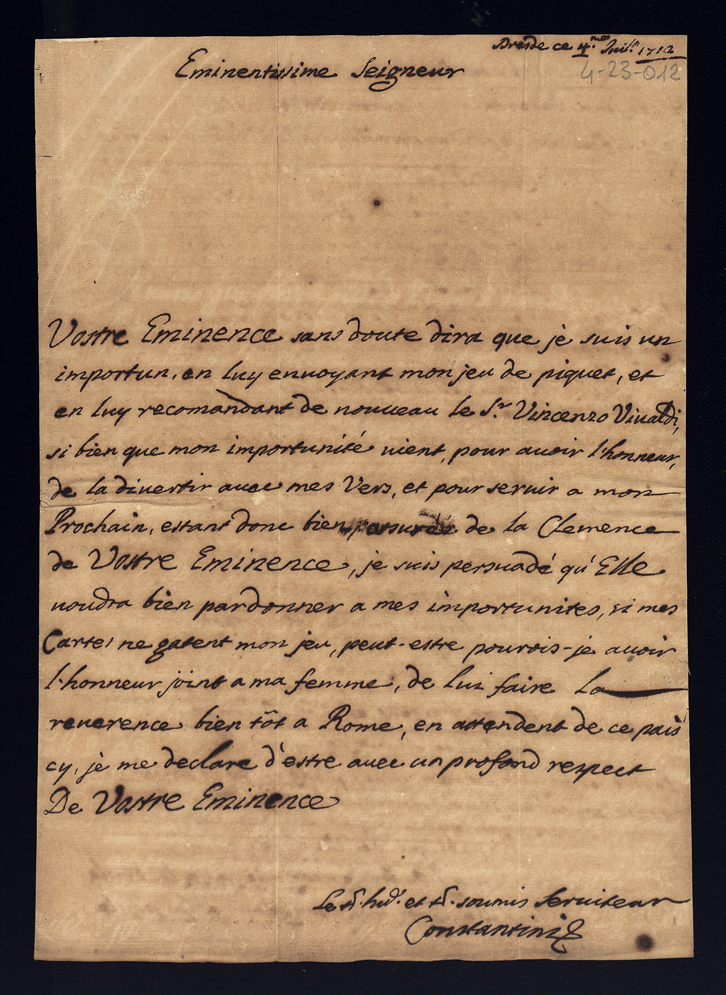 Dresde ce 4.me Juil. 1712
4-23-012
Eminentissime Seigneur
Vostre Eminence sans doute dira que je suis un
importun, en luy envoyant mon jeu de piquet, et
en luy recomandant de nouveau le S.r Vincenzo Vivaldi,
si bien que mon importunité vient, pour avoir l'honneur,
de la divertir avec mes Vers, et pour servir a mon
Prochain, estant donc bien de la Clemence
de Vostre Eminence, je suis persuadé qu'Elle
voudra bien pardonner a mes importunites, si mes
Cartes ne gatent mon jeu, peut-estre pourois-je avoir
l'honneur joint a ma femme, de lui faire la
reverence bien tôt a Rome, en attendent de ce païs
cy, je me declare d'estre avec un profond respect
De Vostre Eminence
Le tr. hu. et tr. soumis Serviteur
Constantini